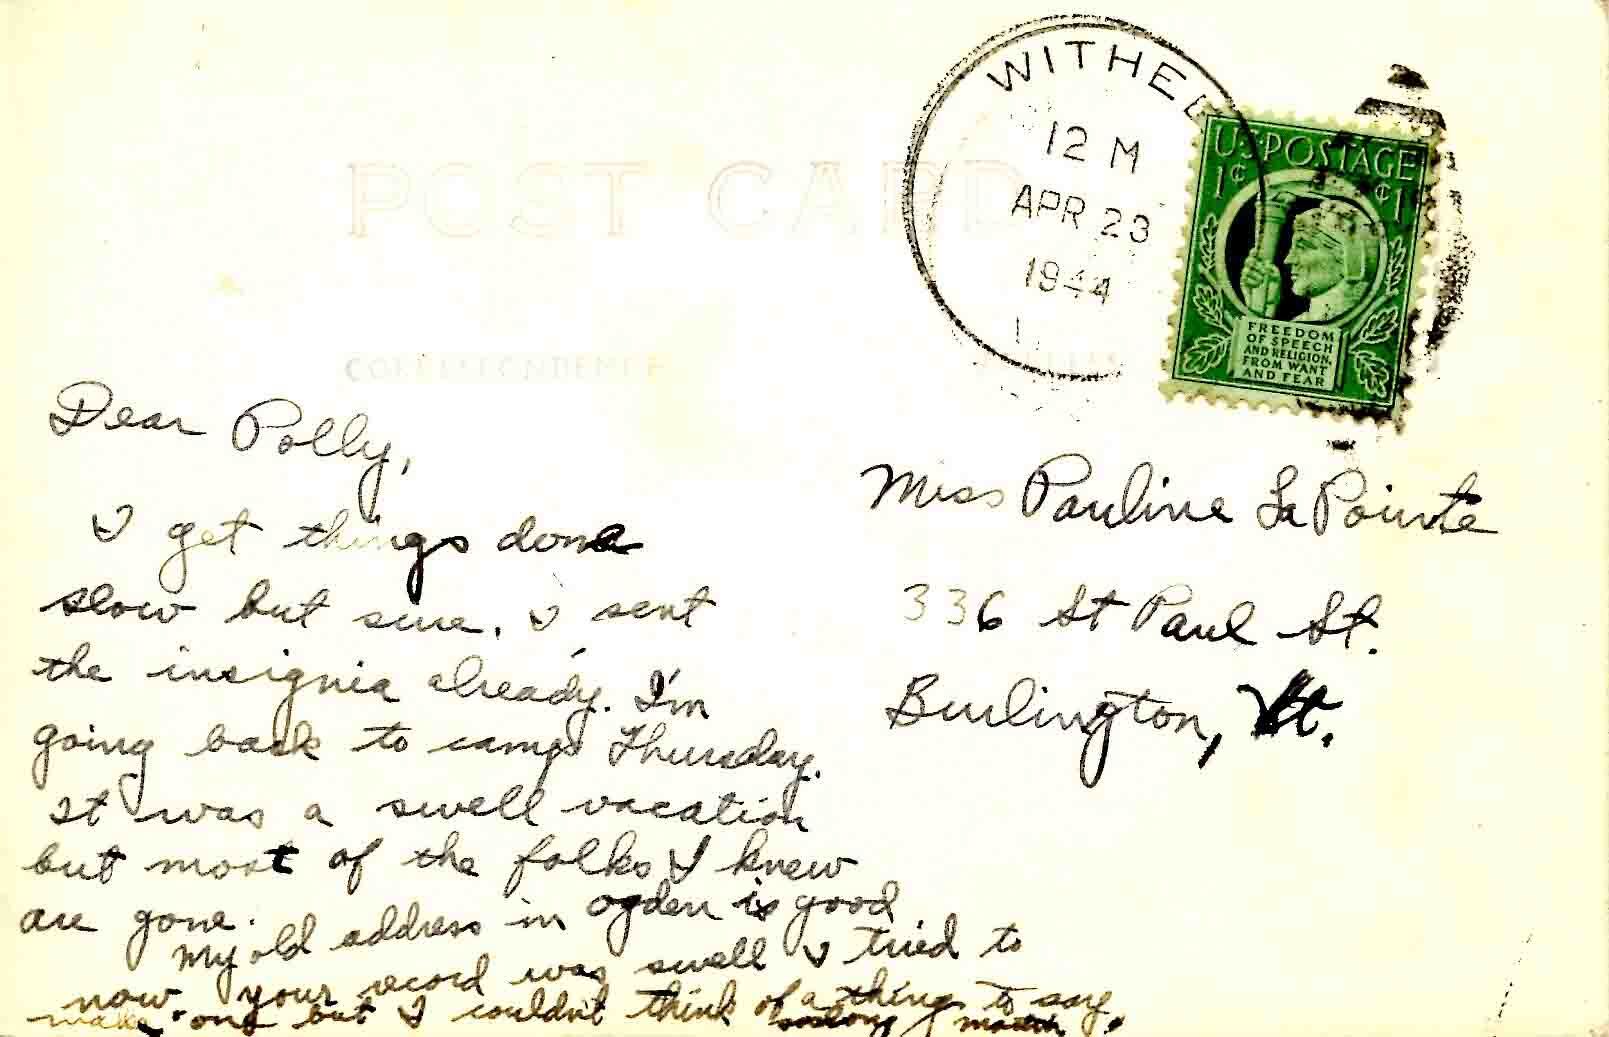 WITHEE
12 M
APR 23
1944
U.S. POSTAGE
1¢ ¢1
FREEDOM
OF SPEECH
AND RELIGION,
FROM WANT
AND FEAR
POST CARD
CORRESPONDENCE
Dear Polly,
I get things done
slow but sure. I sent
the insignia already. I'm
going back to camp Thursday.
It was a swell vacation
but most of the folks I knew
are gone.
My old address in Ogden is good
now. your record was swell I tried to
make one but I couldn't think of a thing to say.
so long
Miss Pauline LaPointe
336 St Paul St.
Burlington, Vt.